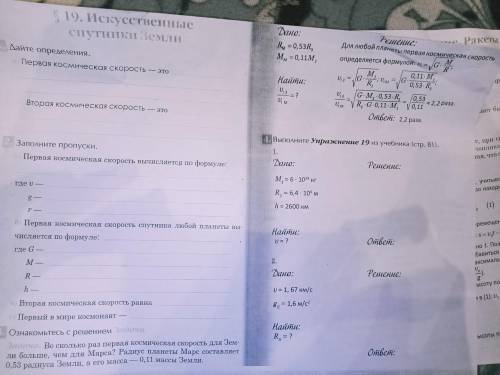 § 19. Искусственные
спутники Земли
Дайте определения.
Первая космическая скорость — это
Вторая космическая скорость — это
Заполните пропуски.
Первая космическая скорость вычисляется по формуле:
где υ —
g —
r —
Первая космическая скорость спутника любой планеты вы
числяется по формуле:
где G —
M —
R —
h —
Вторая космическая скорость равна
Первый в мире космонавт —
Ознакомьтесь с решением задачи.
Задача. Во сколько раз первая космическая скорость для Зем-
ли больше, чем для Марса? Радиус планеты Марс составляет
0,53 радиуса Земли, а его масса — 0,11 массы Земли.
Дано:
Rм = 0,53Rз
Mм = 0,11Mз
Найти:
υ₁з/υ₁м = ?
Решение:
Для любой планеты первая космическая скорость
определяется формулой: υ₁ = √(G · M/R).
υ₁з = √(G · Mз/Rз); υ₁м = √(G · 0,11·Mз/0,53·Rз)
υ₁з/υ₁м = √(G·Mз·0,53·Rз/Rз·G·0,11·Mз) = √(0,53/0,11) = 2,2 раза.
Ответ: 2,2 раза.
4. Выполните Упражнение 19 из учебника (стр. 81).
1.
Дано: Решение:
Mз = 6 · 10²⁴ кг
Rз = 6,4 · 10⁶ м
h = 2600 км
Найти:
υ = ? Ответ:
2.
Дано: Решение:
υ = 1, 67 км/с
= 1,6 м/с²
Найти:
= ?
Ответ:
Ракеты
(1)